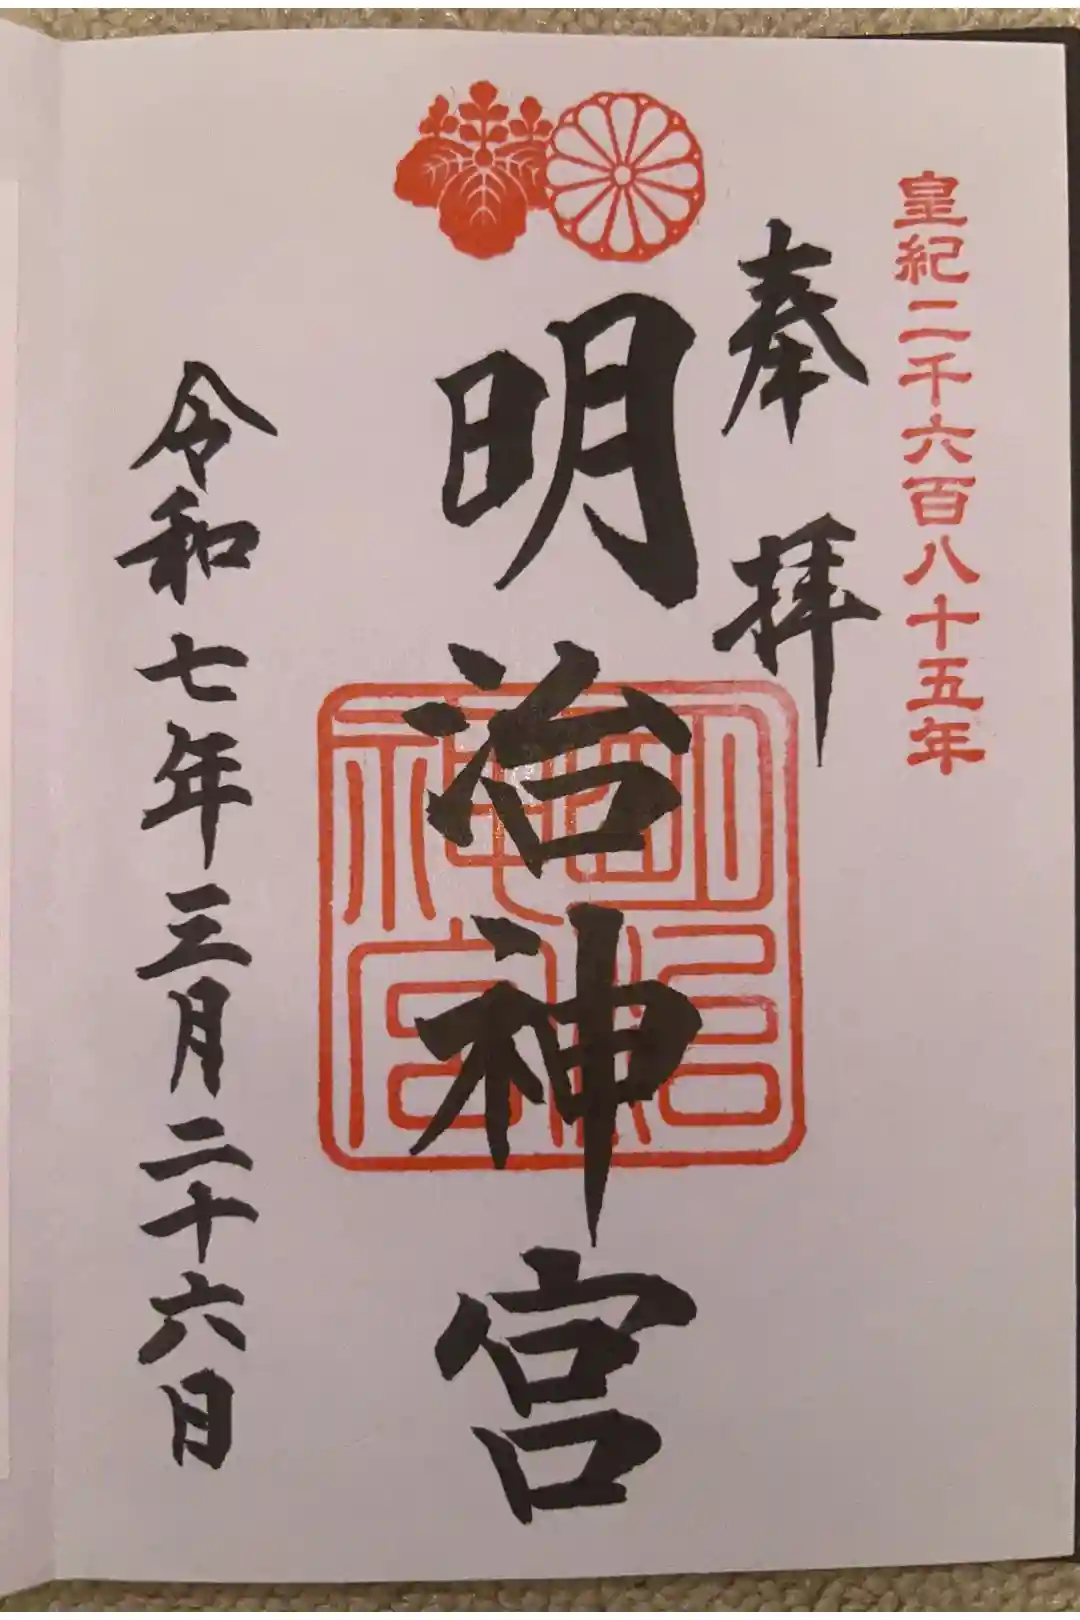 皇紀二千六百八十五年
奉拝
明治神宮
明治神宮
令和七年三月二十六日